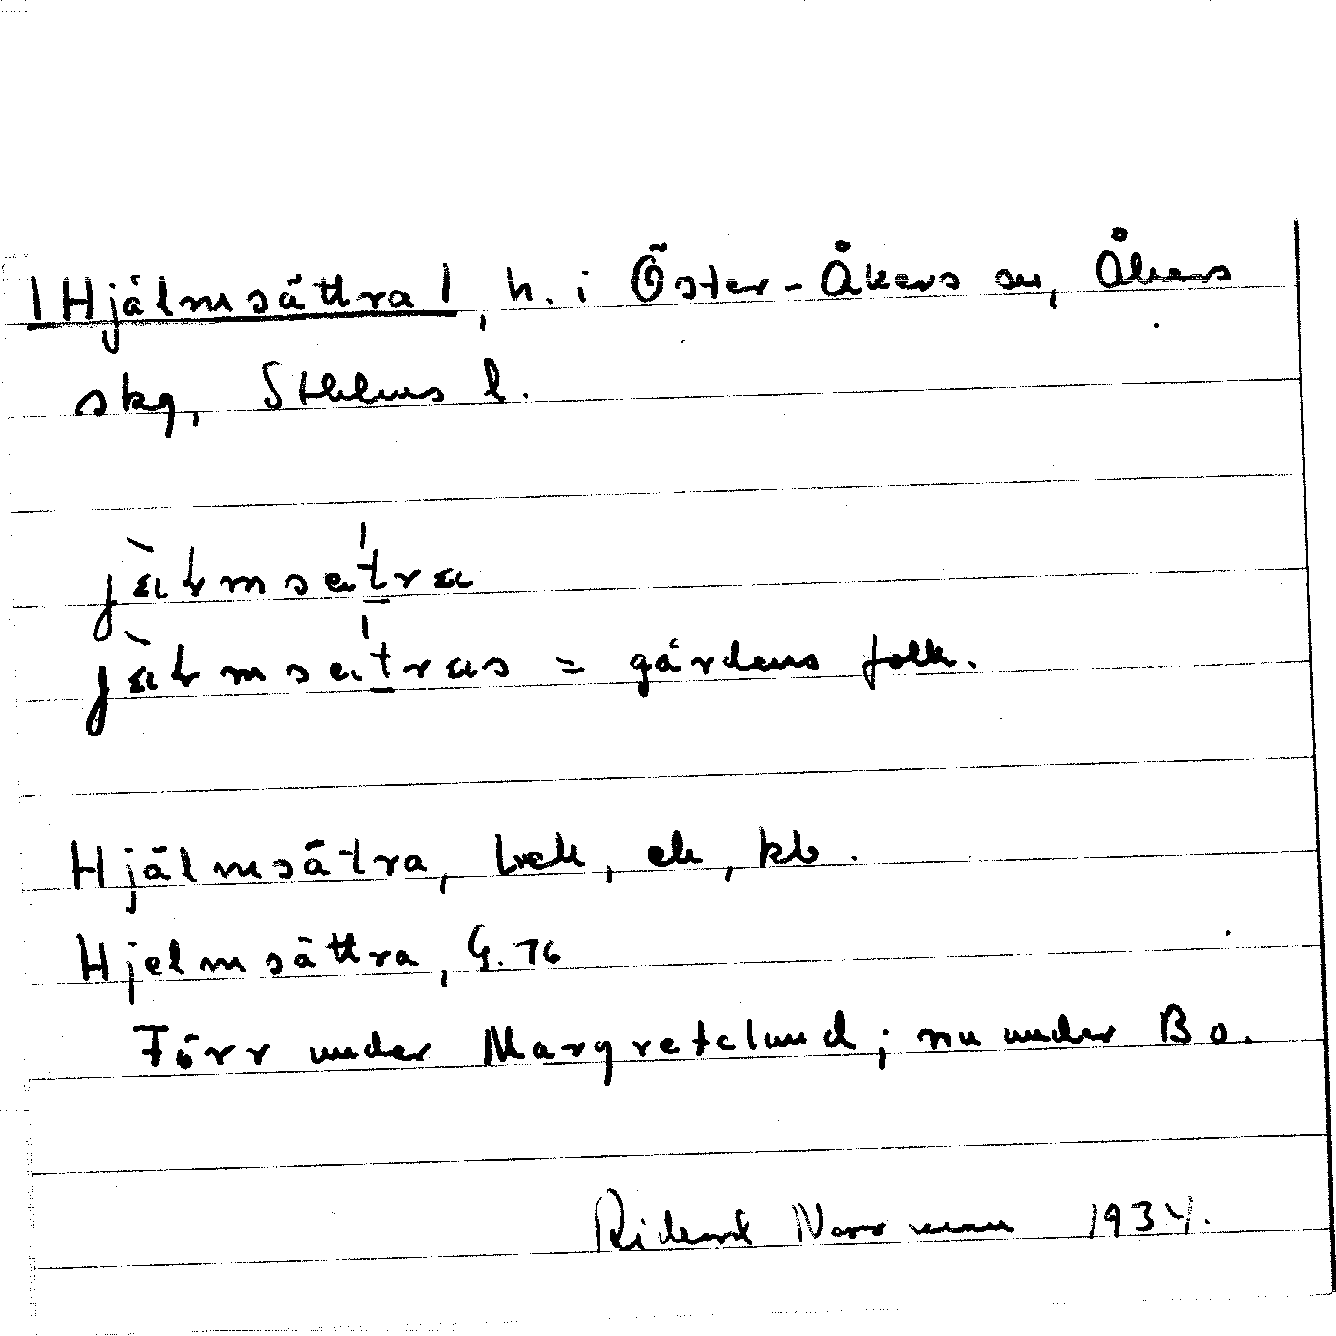 |Hjälmsättra|, h. i Öster-Åkers sn, Åkers
skg, Sthlms l.
= gårdens folk.
Hjälmsätra, kb.
Hjelmsättra, G. 76
Förr under Margretelund; nu under Bo.
Rickard Norrman 1934.